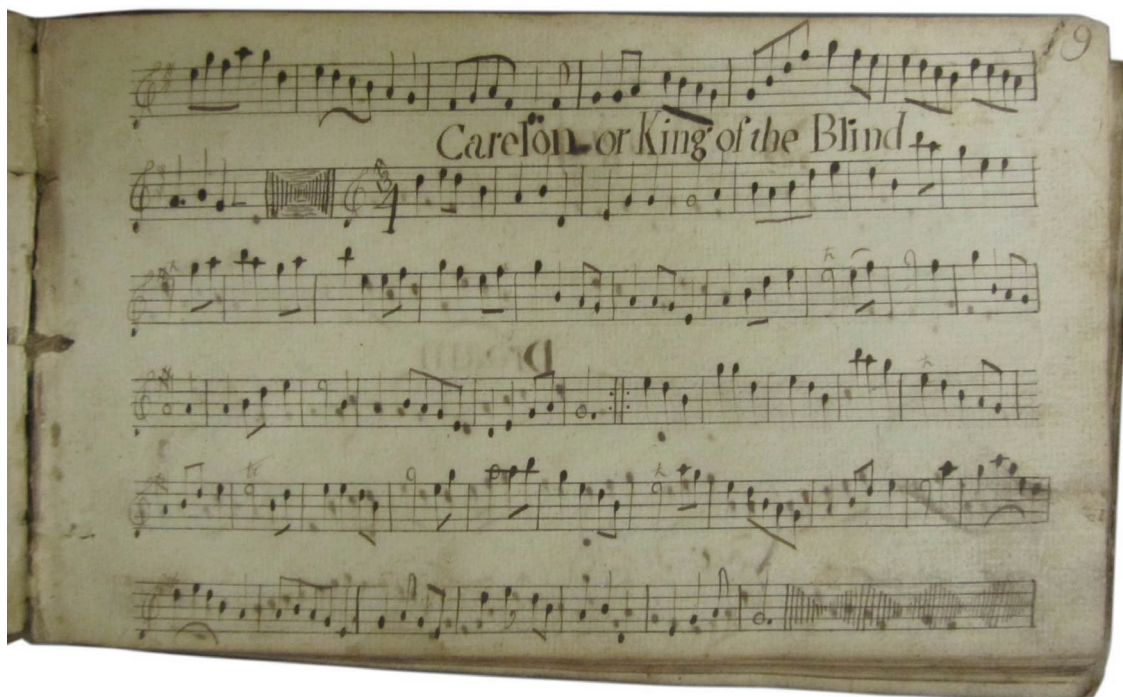 19
Carelön or King of the Blind
3